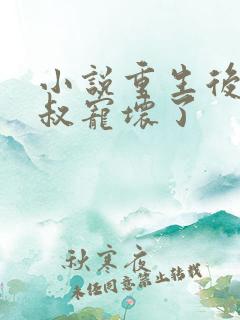 小說重生後
叔寵壞了
秋寒夜
未经同意禁止转载